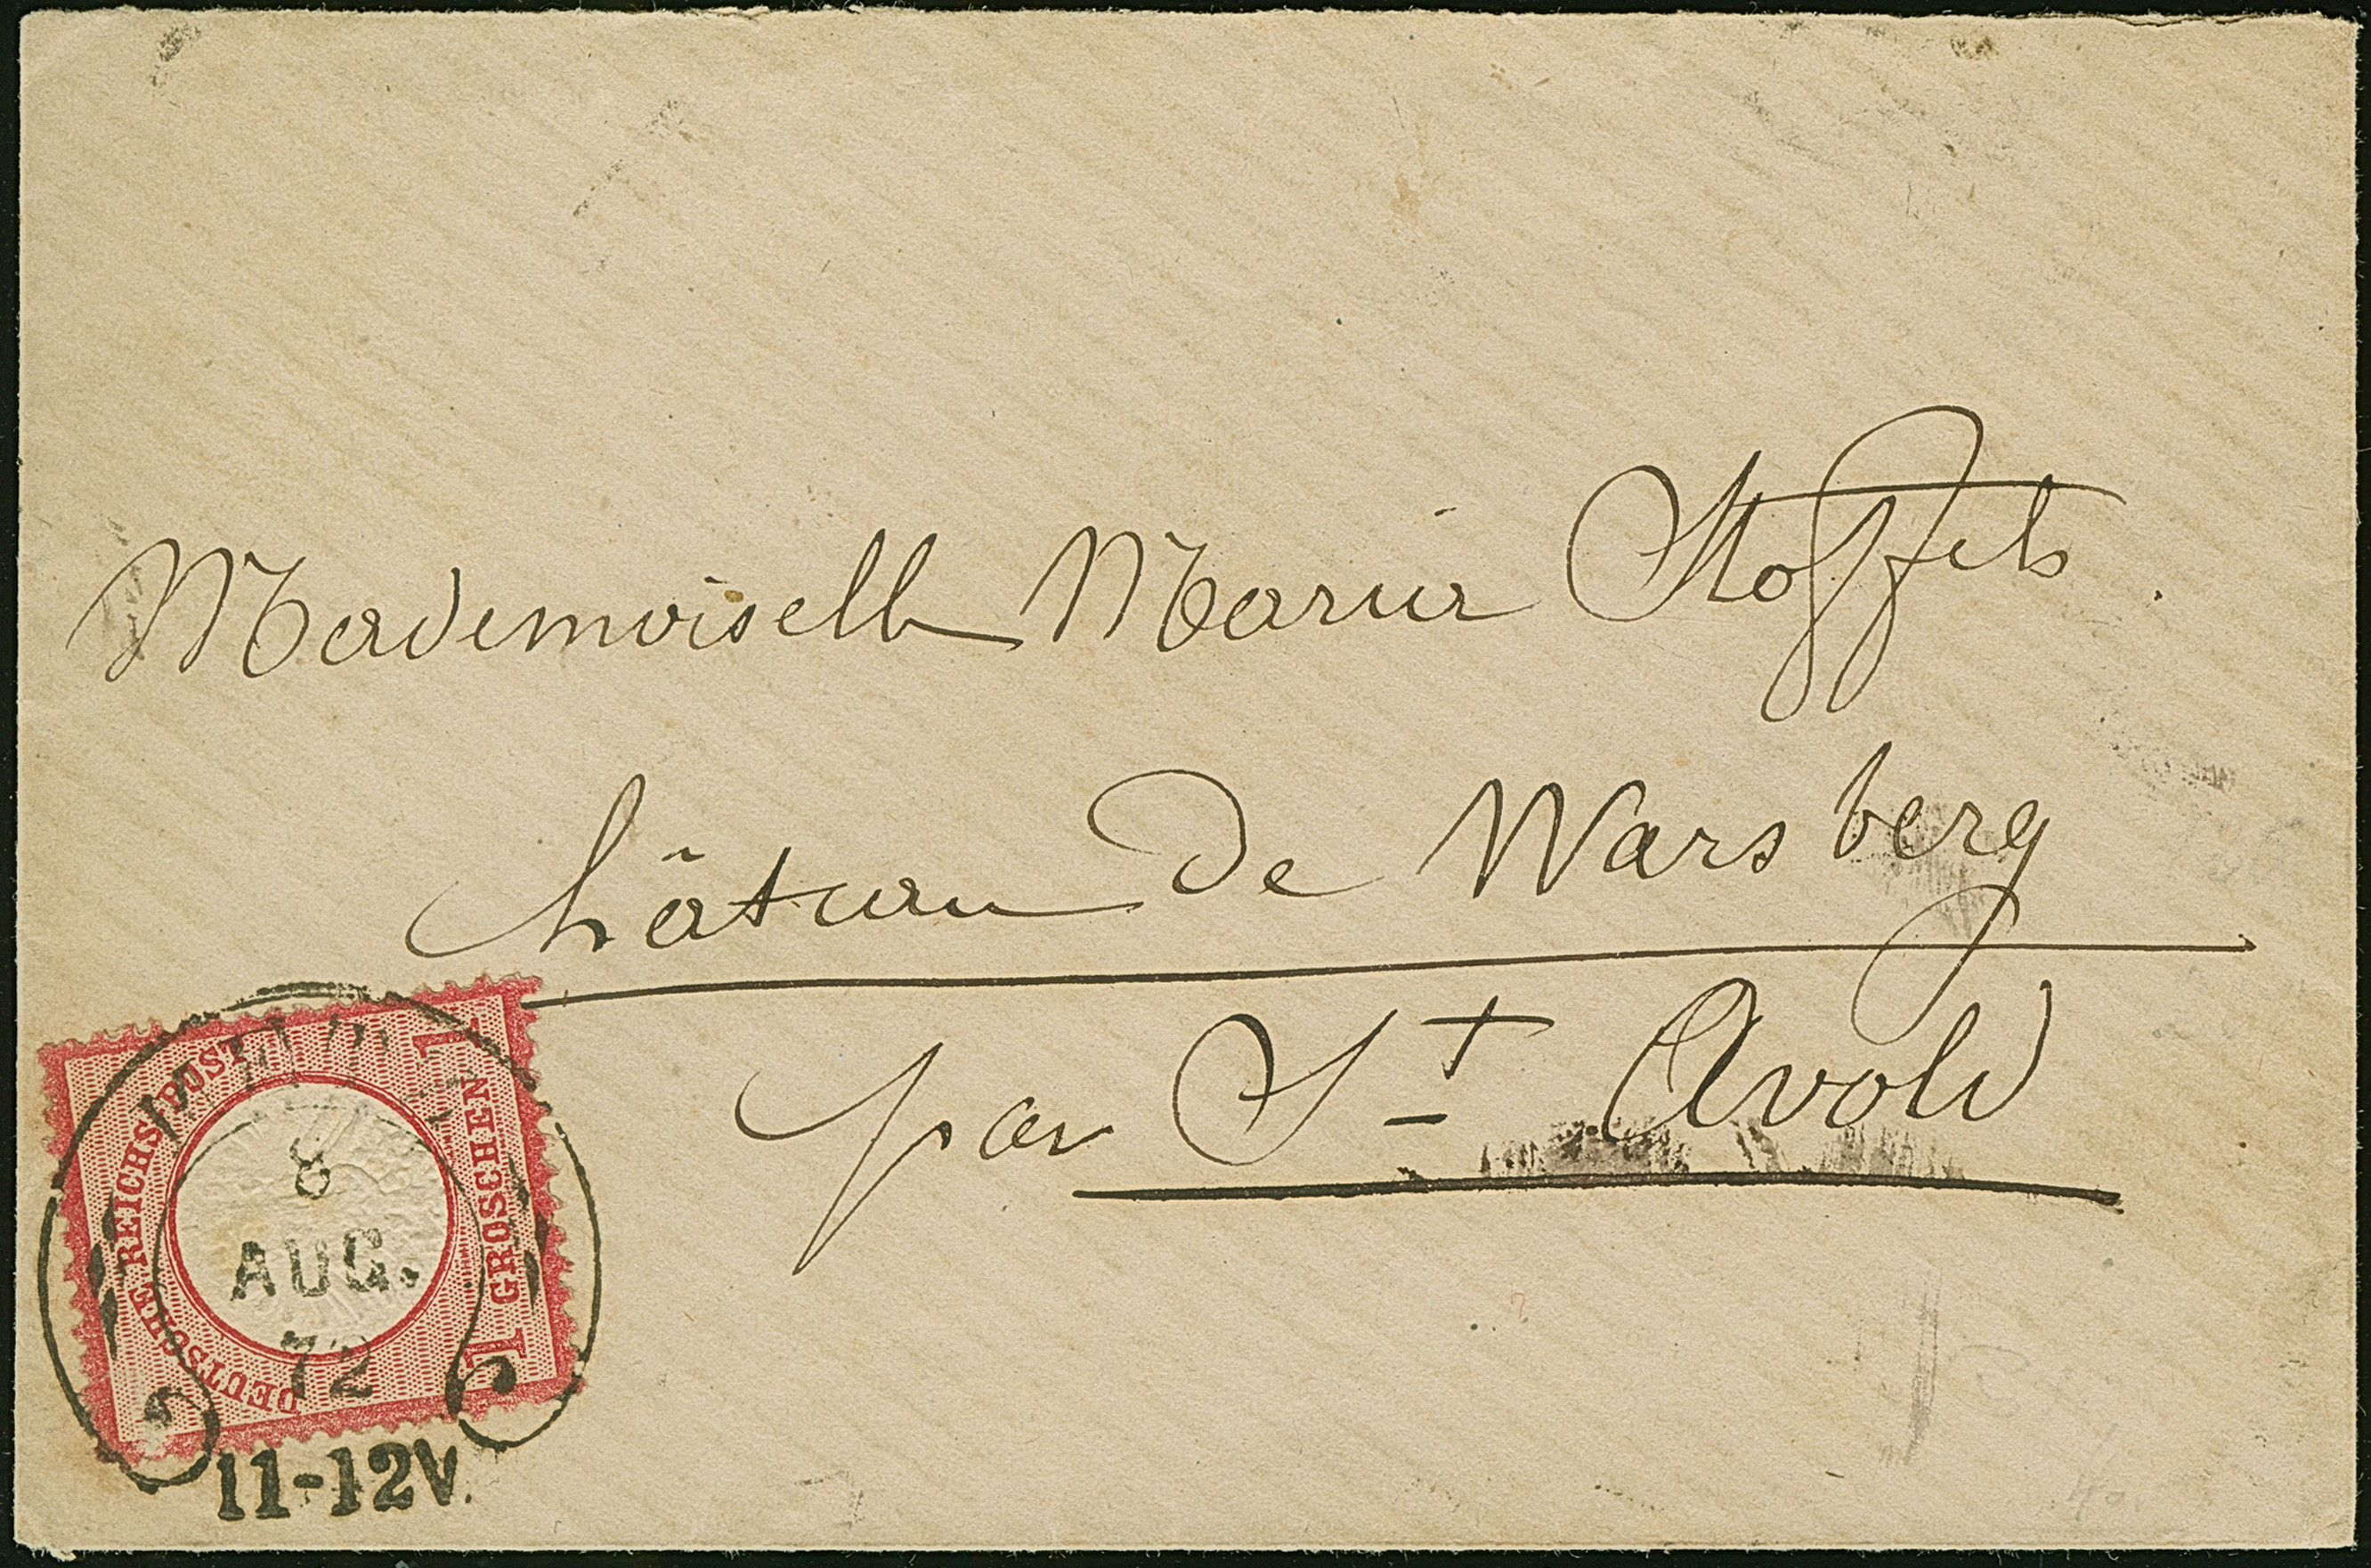 Mademoiselle Marie Stoffels
château de Warsberg
par St Avold
DEUTSCHE REICHS-POST
1 GROSCHEN 1
8
AUG.
72
11-12V.